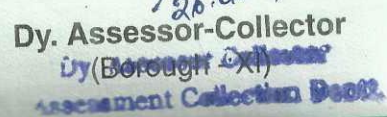 Dy. Assessor-Collector
(Borough - XI)
Dy
Assessment Collection Deptt.